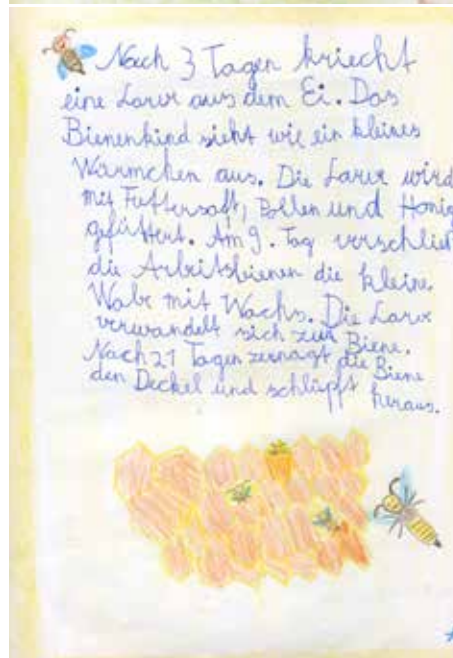 Nach 3 Tagen kriecht
eine Larve aus dem Ei. Das
Bienenkind sieht wie ein kleines
Würmchen aus. Die Larve wird
mit Futtersaft, Pollen und Honig
gefüttert. Am 9. Tag verschließ
die Arbeitsbienen die kleine
Wabe mit Wachs. Die Larve
verwandelt sich zur Biene.
Nach 21 Tagen zernagt die Biene
den Deckel und schlüpft heraus.